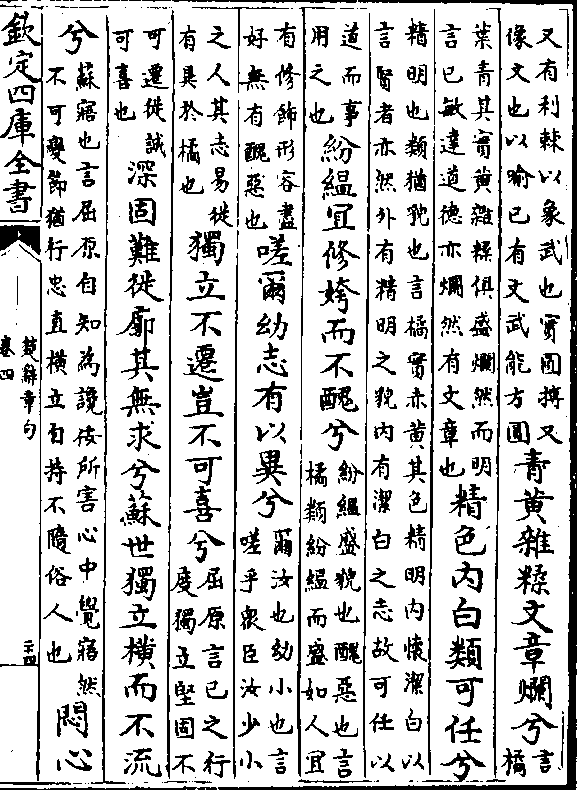 又有利棘以象武也實圓摶又
像文也以喻己有文武能方圓
青黄雜糅文章爛兮
言
橘
葉青其實黄雜糅俱盛爛然而明
言己敏達道德亦爛然有文章也
精色内白類可任兮
精明也類猶貌也言橘實赤黄其色精明内懷潔白以
言賢者亦然外有精明之貌内有潔白之志故可任以
道而事
用之也
紛緼宜修姱而不醜兮
紛緼盛貌也醜惡也言
橘類紛緼而盛如人宜
有修飾形容盡
好無有醜惡也
嗟爾幼志有以異兮
爾汝也幼小也言
嗟乎衆臣汝少小
之人其志易徙
有異於橘也
獨立不遷豈不可喜兮
屈原言己之行
度獨立堅固不
可遷徙誠
可喜也
深固難徙廓其無求兮蘇世獨立横而不流
兮
蘇寤也言屈原自知為讒佞所害心中覺寤然
不可變節猶行忠直横立自持不隨俗人也
悶心
欽定四庫全書
楚辭章句
卷四
二十四